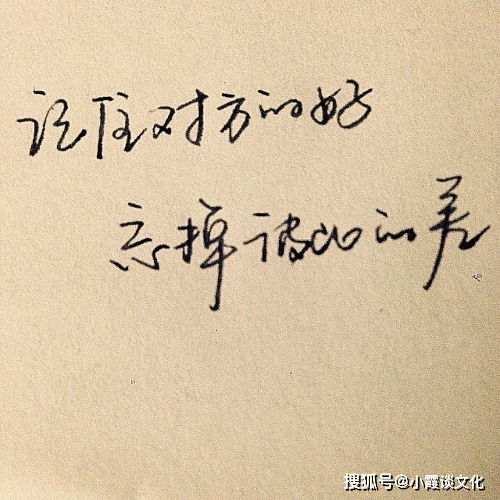 记住对方的好
忘掉彼此的差
搜狐号@小霞谈文化